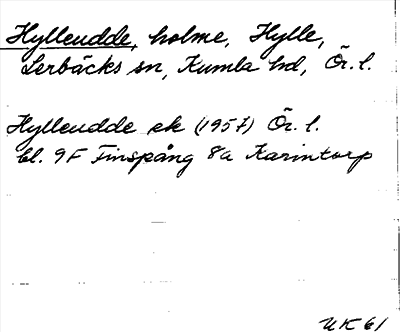 Hylleudde, holme, Hylle,
Lerbäcks sn, Kumla hd, Ör. l.
Hylleudde ek (1957) Ör. l.
bl. 9F Finspång 8a Karintorp
UK 61